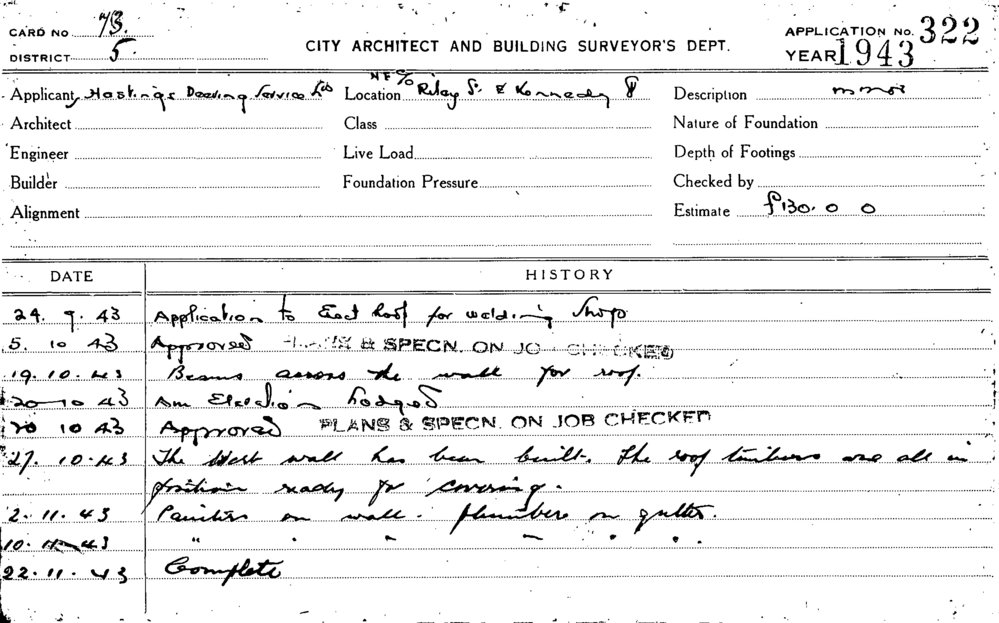 CARD NO 73.
DISTRICT 5.
CITY ARCHITECT AND BUILDING SURVEYOR'S DEPT.
APPLICATION NO. 322
YEAR 1943
Applicant Hastings Deering Service Ltd Location NE C/o Riley St & Kennedy St Description
Architect Class Nature of Foundation
Engineer Live Load Depth of Footings
Builder Foundation Pressure Checked by
Alignment Estimate £130. 0 0
DATE HISTORY
24. 9. 43 Application to Erect Roof for welding Shop
5. 10 43 Approved PLANS & SPECN. ON JOB CHECKED
19. 10. 43 Beams across the wall for roof.
20 10 43 Am lodged
20 10 43 Approved PLANS & SPECN. ON JOB CHECKED
27. 10. 43 The West wall has been built. The roof timbers are all in
position ready for covering.
2. 11. 43 Painters on wall. plumbers on gutter.
10. 11. 43 " " " " " "
22. 11. 43 Complete